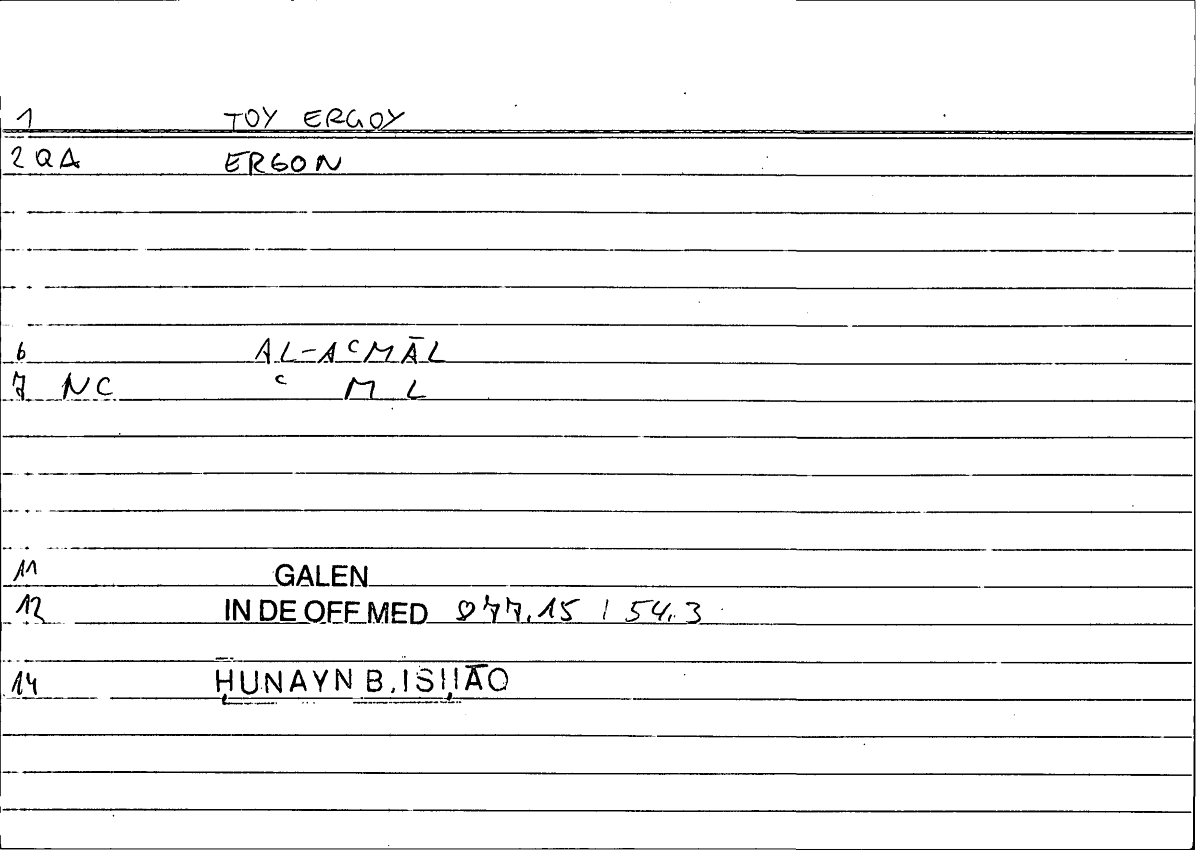 1 TOY ERGOY
2 QA ERGON
6 AL-AᶜMĀL
7 NC ᶜ M L
11 GALEN
12 IN DE OFF MED 877.15 / 54.3
14 ḤUNAYN B. ISḤĀQ